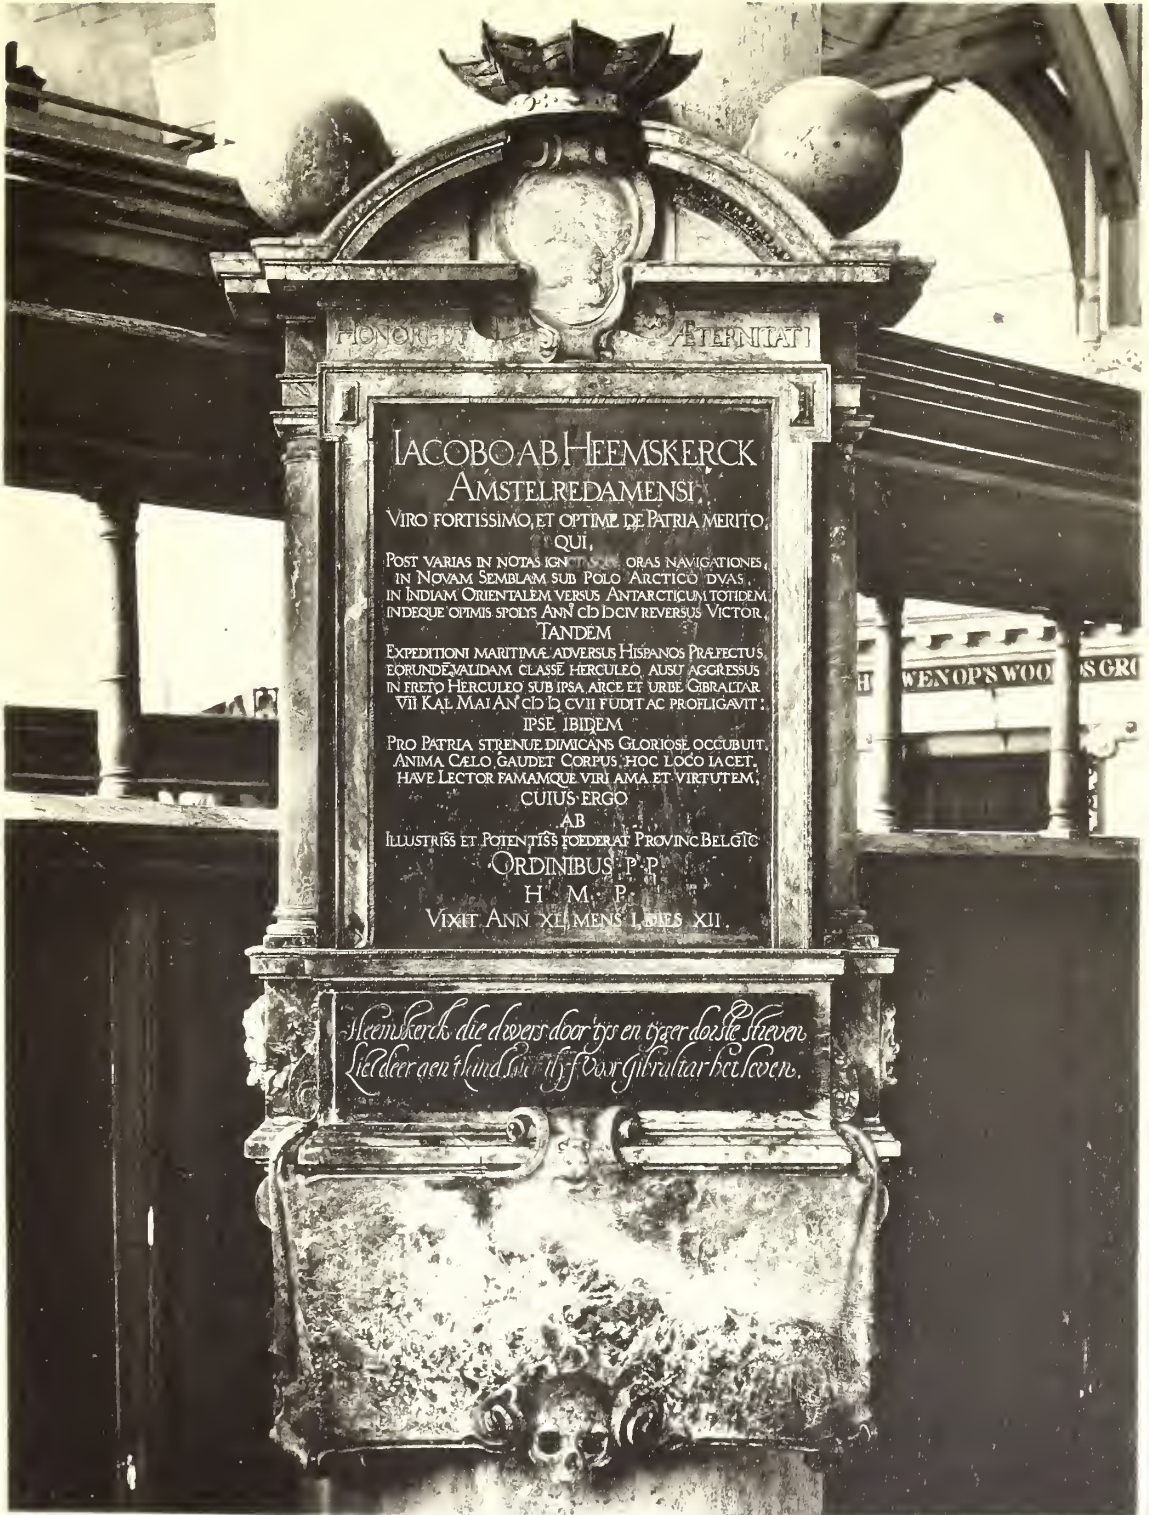 HONORI ET ÆTERNITATI
IACOBO AB HEEMSKERCK
AMSTELREDAMENSI,
VIRO FORTISSIMO, ET OPTIME DE PATRIA MERITO,
QUI,
POST VARIAS IN NOTAS ORAS NAVIGATIONES,
IN NOVAM SEMBLAM SUB POLO ARCTICO DVAS,
IN INDIAM ORIENTALEM VERSUS ANTARCTICUM TOTIDEM
INDEQUE OPIMIS SPOLYS ANNº CIƆ IƆ CIV REVERSUS VICTOR,
TANDEM
EXPEDITIONI MARITIMÆ ADVERSUS HISPANOS PRÆFECTUS,
EORUNDĒ VALIDAM CLASSĒ HERCULEO AUSU AGGRESSUS
IN FRETO HERCULEO SUB IPSA ARCE ET URBE GIBRALTAR
VII KAL MAI ANº CIƆ IƆ CVII FUDIT AC PROFLIGAVIT:
IPSE IBIDEM
PRO PATRIA STRENUE DIMICANS GLORIOSE OCCUBUIT,
ANIMA CÆLO GAUDET CORPUS HOC LOCO IACET.
HAVE LECTOR FAMAMQUE VIRI AMA ET VIRTUTEM;
CUIUS ERGO
AB
ILLUSTRISS ET POTENTISS FOEDERAT PROVINC BELGIC
ORDINIBUS P·P
H M P
VIXIT ANN XL, MENS I, DIES XII.
Heemskerck die dwers door 'tys en tyser dorste streven
Liet d'eer aen 't land hier 't lyf voor Gibraltar het leven.
WENOP'S WOO S GRO